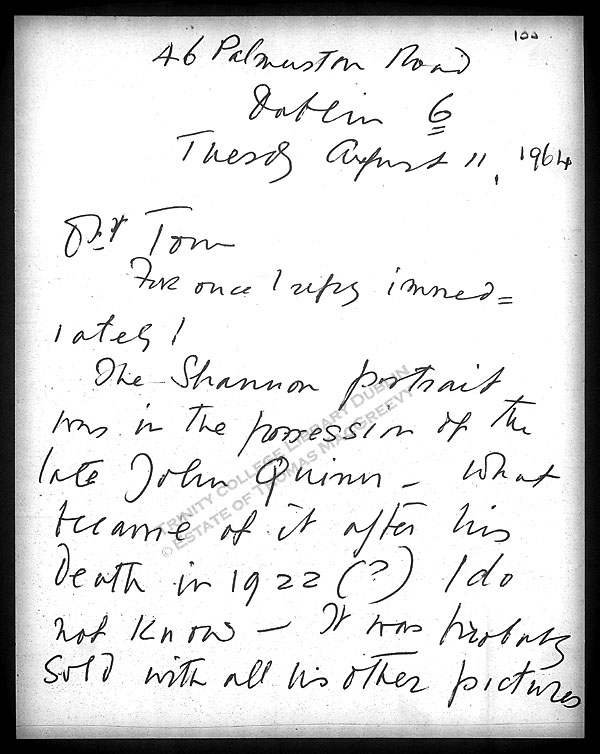 100
46 Palmerston Road
Dublin 6
Tuesdy August 11, 1964
Tom
For once I reply immed=
iately!
The Shannon portrait
was in the possession of the
late John Quinn – what
became of it after his
Death in 1922 (?) I do
not know – It was probably
sold with all his other pictures
TRINITY COLLEGE LIBRARY DUBLIN
© ESTATE OF THOMAS MACGREEVY